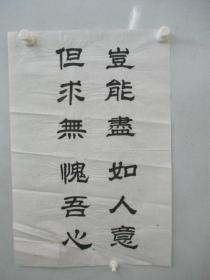 豈能盡如人意
但求無愧吾心